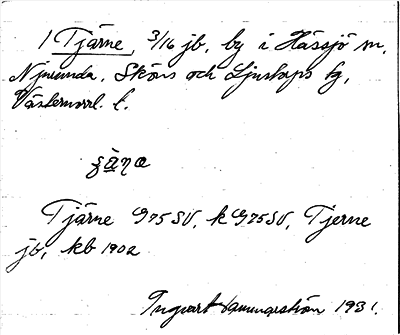 1 Tjärne 3/16 jb, by i Hässjö sn,
Njurunda, Sköns och Ljustorps tg,
Västernorrl. l.
Tjärne G75SV, k G75SV, Tjerne
jb, kb 1902
Ingvart 1931.